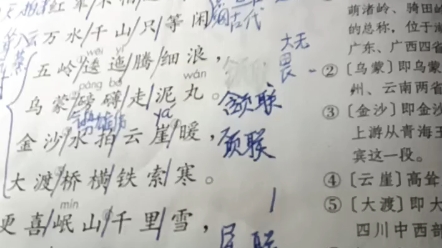 万水/千山/只/等闲
wēi yí
五岭/逶迤/腾/细浪，
páng bó wán
乌蒙/磅礴/走/泥丸。 颔联
yá
金沙/水拍/云崖/暖， 颈联
大渡/桥横/铁索/寒。
mín
更喜/岷山/千里/雪，
大无畏
萌渚岭、骑田岭
的总称，位于
广东、广西四省
②〔乌蒙〕即乌蒙
州、云南两省
③〔金沙〕即金沙
上游从青海玉
宾这一段。
④〔云崖〕高耸
⑤〔大渡〕即大
四川中西部